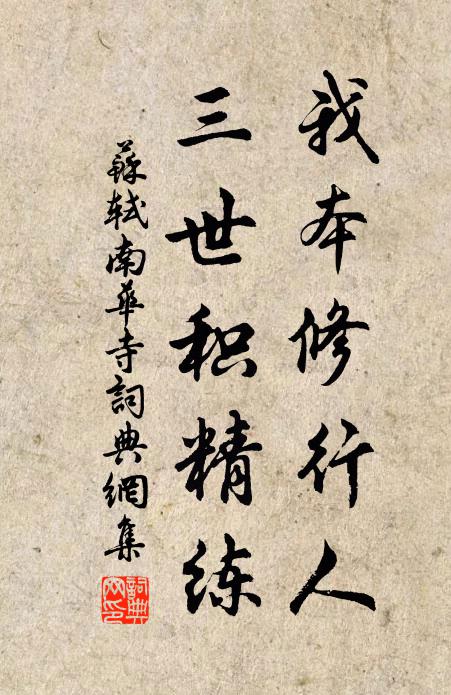 我本修行人
三世积精练
蘇軾南華寺詞典網集
詞典网印